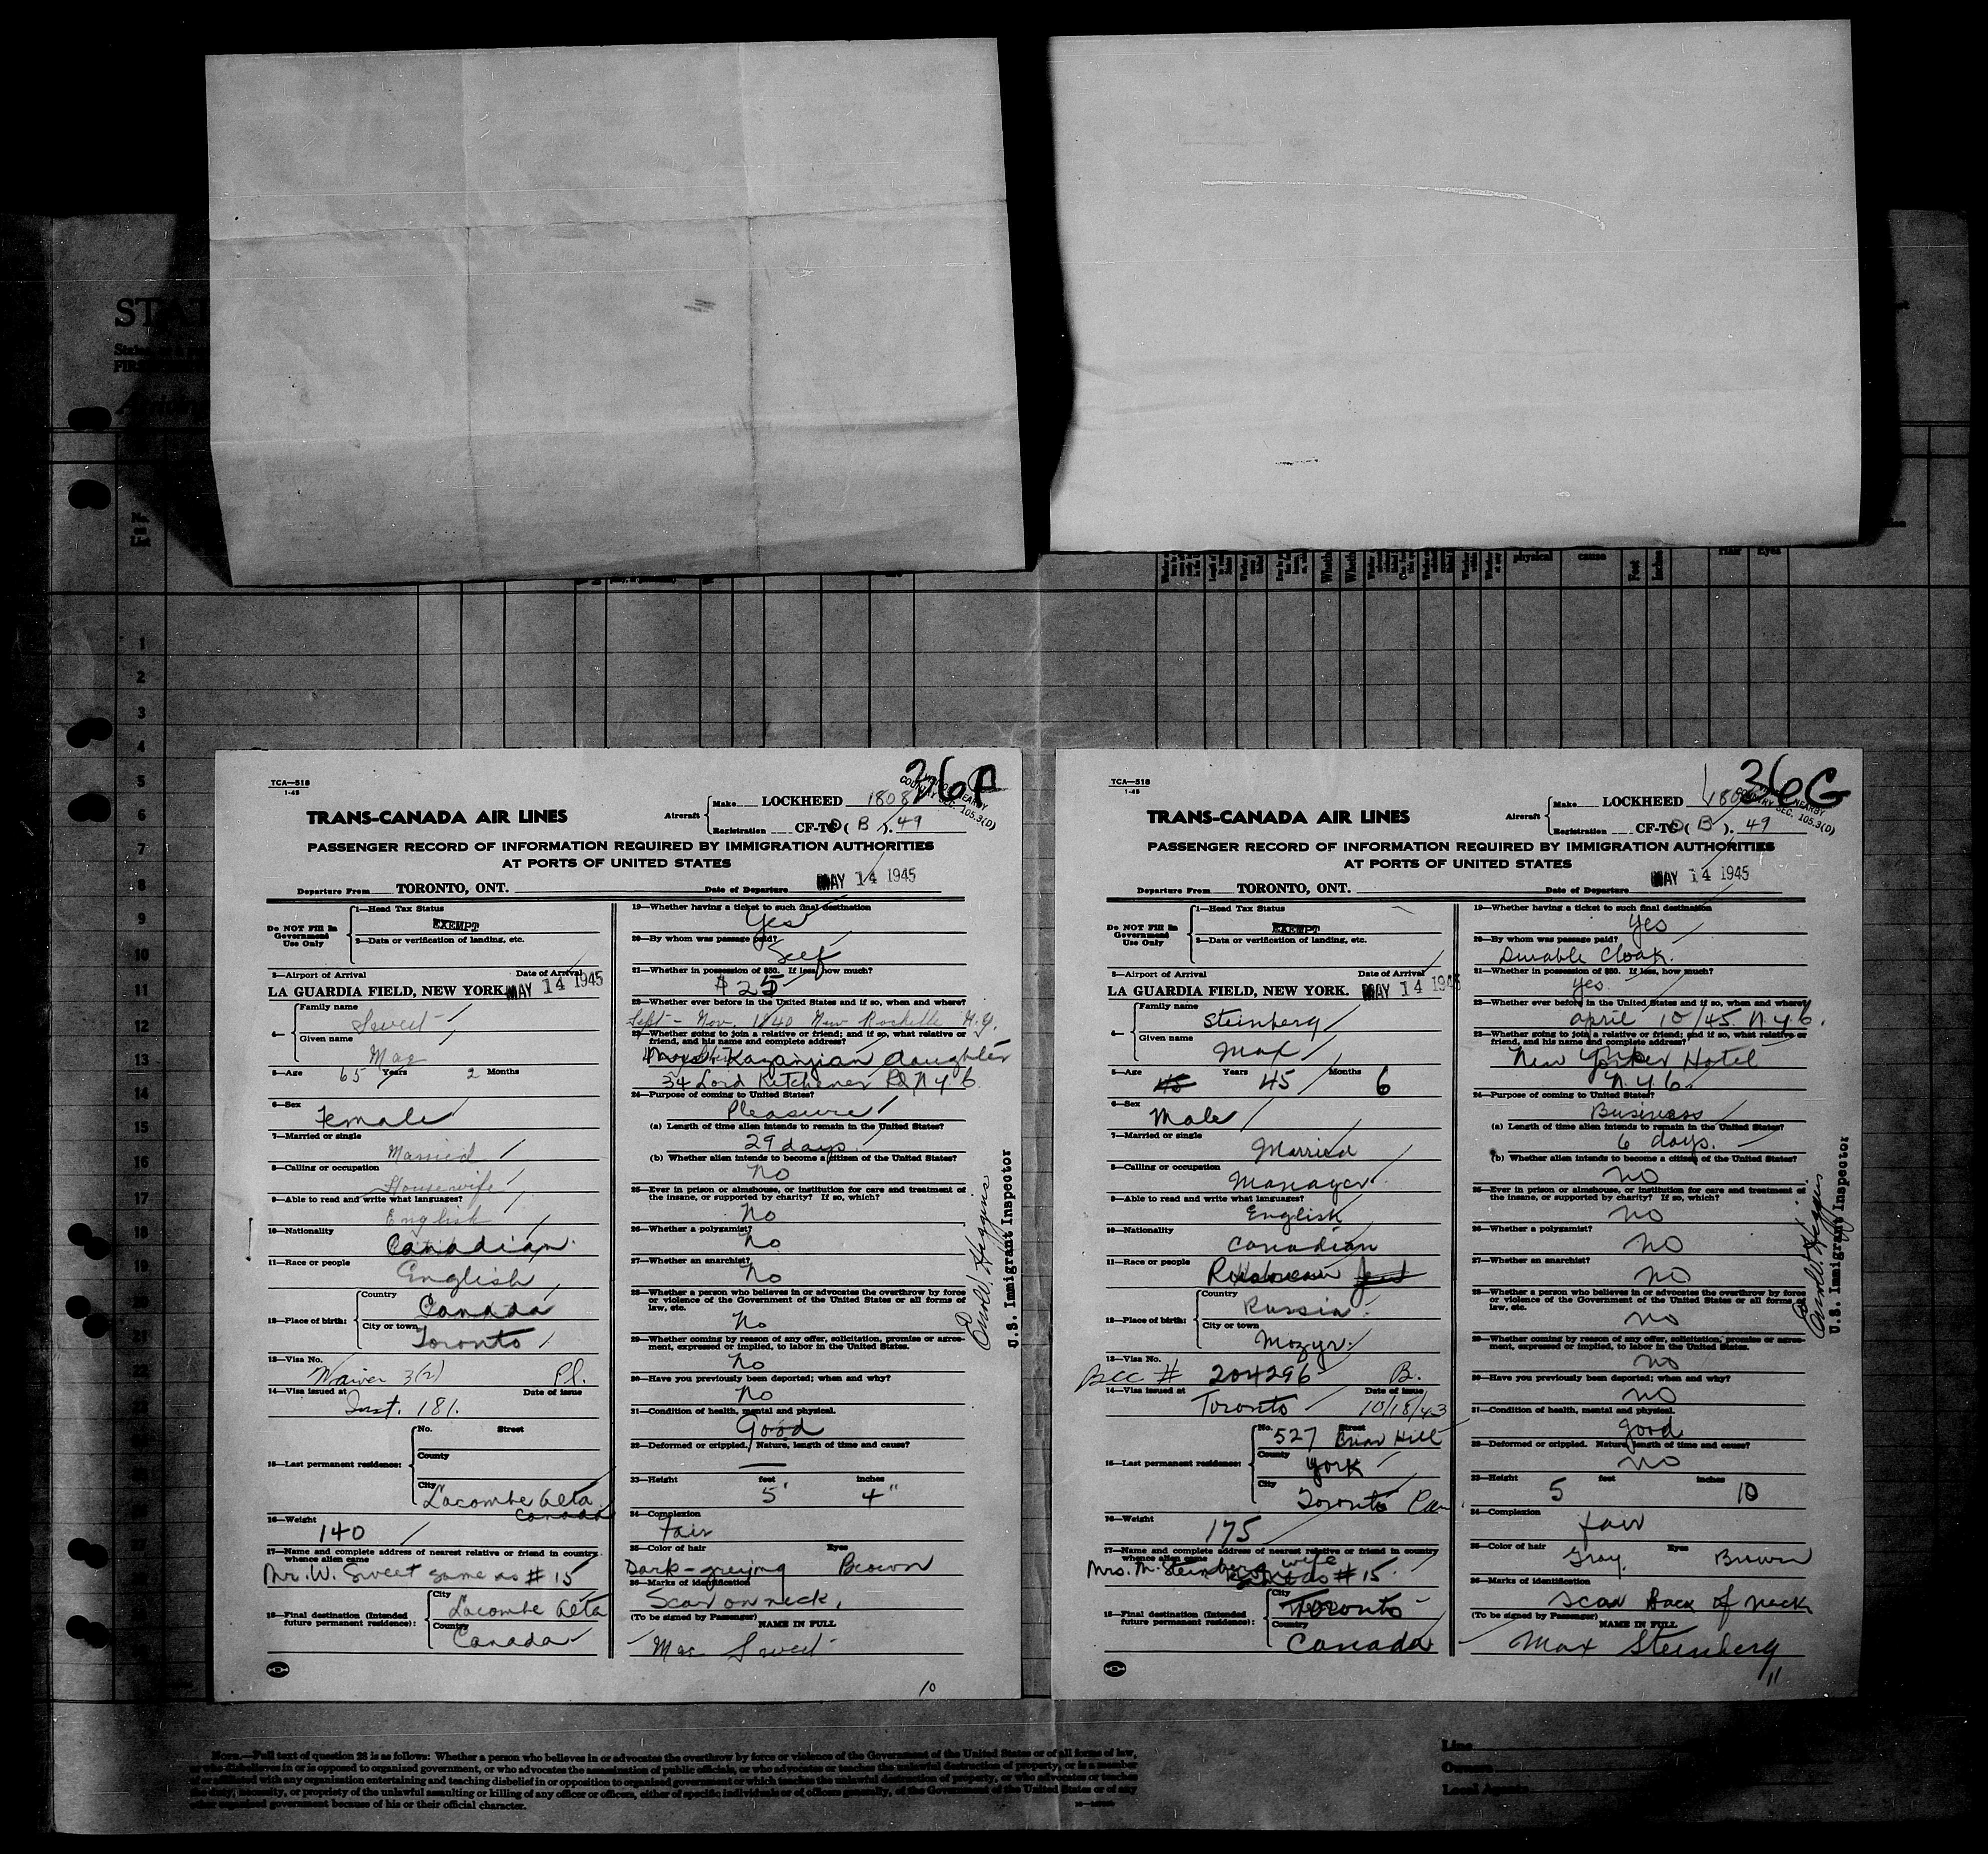 STAT
physical
cause
Feet
Inches
Hair
Eyes
1
2
3
4
5
6
7
8
9
10
11
12
13
14
15
16
17
18
19
TCA—518
1-45
26A
TRANS-CANADA AIR LINES
Aircraft
Make LOCKHEED 1808
Registration CF-TC ( B ). 49
PASSENGER RECORD OF INFORMATION REQUIRED BY IMMIGRATION AUTHORITIES
AT PORTS OF UNITED STATES
Departure From TORONTO, ONT.
Date of Departure MAY 14 1945
Do NOT Fill In
Government
Use Only
1—Head Tax Status
EXEMPT
2—Data or verification of landing, etc.
3—Airport of Arrival
Date of Arrival
LA GUARDIA FIELD, NEW YORK. MAY 14 1945
4—
Family name
Sweet
Given name
Mae
5—Age 65 Years 2 Months
6—Sex
Female
7—Married or single
Married
8—Calling or occupation
Housewife
9—Able to read and write what languages?
English
10—Nationality
Canadian
11—Race or people
English
12—Place of birth:
Country
Canada
City or town
Toronto
13—Visa No.
Waiver 3(2) Pl.
14—Visa issued at
Date of issue
Inst. 181.
15—Last permanent residence:
No. Street
County
City
Lacombe Alta
Canada
16—Weight
140
17—Name and complete address of nearest relative or friend in country
whence alien came
Mr. W. Sweet same as # 15
18—Final destination (Intended
future permanent residence):
City
Lacombe Alta
Country
Canada
19—Whether having a ticket to such final destination
Yes
20—By whom was passage paid?
Self
21—Whether in possession of $50. If less, how much?
$25
22—Whether ever before in the United States and if so, when and where?
Sept - Nov. 1940 New Rochelle N.Y.
23—Whether going to join a relative or friend; and if so, what relative or
friend, and his name and complete address?
Kazanjian daughter
34 Lord Kitchener Rd N.Y.C
24—Purpose of coming to United States?
Pleasure
(a) Length of time alien intends to remain in the United States?
29 days.
(b) Whether alien intends to become a citizen of the United States?
No
25—Ever in prison or almshouse, or institution for care and treatment of
the insane, or supported by charity? If so, which?
No
26—Whether a polygamist?
No
27—Whether an anarchist?
No
28—Whether a person who believes in or advocates the overthrow by force
or violence of the Government of the United States or all forms of
law, etc.
No
29—Whether coming by reason of any offer, solicitation, promise or agree-
ment, expressed or implied, to labor in the United States.
No
30—Have you previously been deported; when and why?
No
31—Condition of health, mental and physical.
Good
32—Deformed or crippled. Nature, length of time and cause?
—
33—Height feet inches
5' 4"
34—Complexion
Fair
35—Color of hair Eyes
Dark-greying Brown
36—Marks of identification
Scar on neck.
(To be signed by Passenger) NAME IN FULL
Mae Sweet
10
U.S. Immigrant Inspector
TCA—518
1-45
36G
TRANS-CANADA AIR LINES
Aircraft
Make LOCKHEED
Registration CF-TC ( B ). 49
PASSENGER RECORD OF INFORMATION REQUIRED BY IMMIGRATION AUTHORITIES
AT PORTS OF UNITED STATES
Departure From TORONTO, ONT.
Date of Departure MAY 14 1945
Do NOT Fill In
Government
Use Only
1—Head Tax Status
EXEMPT
2—Data or verification of landing, etc.
3—Airport of Arrival
Date of Arrival
LA GUARDIA FIELD, NEW YORK. MAY 14 1945
4—
Family name
Steinberg
Given name
Max
5—Age 45 Years 45 Months 6
6—Sex
Male
7—Married or single
Married
8—Calling or occupation
Manager
9—Able to read and write what languages?
English
10—Nationality
Canadian
11—Race or people
12—Place of birth:
Country
Russia
City or town
Mozyr.
13—Visa No.
BCC # 204296 B.
14—Visa issued at
Date of issue
Toronto 10/18/43
15—Last permanent residence:
No. Street
527 Briar Hill
County
York
City
Toronto Can
16—Weight
175
17—Name and complete address of nearest relative or friend in country
whence alien came
Mrs. M. Steinberg wife
same as # 15.
18—Final destination (Intended
future permanent residence):
City
Toronto
Country
Canada
19—Whether having a ticket to such final destination
Yes
20—By whom was passage paid?
Durable Cloak.
21—Whether in possession of $50. If less, how much?
yes.
22—Whether ever before in the United States and if so, when and where?
April 10/45. N.Y.C.
23—Whether going to join a relative or friend; and if so, what relative or
friend, and his name and complete address?
New Yorker Hotel
N.Y.C.
24—Purpose of coming to United States?
Business
(a) Length of time alien intends to remain in the United States?
6 days.
(b) Whether alien intends to become a citizen of the United States?
No
25—Ever in prison or almshouse, or institution for care and treatment of
the insane, or supported by charity? If so, which?
No
26—Whether a polygamist?
No
27—Whether an anarchist?
No
28—Whether a person who believes in or advocates the overthrow by force
or violence of the Government of the United States or all forms of
law, etc.
No
29—Whether coming by reason of any offer, solicitation, promise or agree-
ment, expressed or implied, to labor in the United States.
No
30—Have you previously been deported; when and why?
No
31—Condition of health, mental and physical.
Good
32—Deformed or crippled. Nature, length of time and cause?
No
33—Height feet inches
5 10
34—Complexion
Fair
35—Color of hair Eyes
Gray. Brown
36—Marks of identification
Scar Back of neck
(To be signed by Passenger) NAME IN FULL
Max Steinberg
11
U.S. Immigrant Inspector
NOTE.—Full text of question 28 is as follows: Whether a person who believes in or advocates the overthrow by force or violence of the Government of the United States or of all forms of law,
or who disbelieves in or is opposed to organized government, or who advocates the assassination of public officials, or who advocates or teaches the unlawful destruction of property, or is a member
of or affiliated with any organization entertaining and teaching disbelief in or opposition to organized government or which teaches the unlawful destruction of property, or who advocates or teaches
the duty, necessity, or propriety of the unlawful assaulting or killing of any officer or officers, either of specific individuals or of officers generally, of the Government of the United States or of any
other organized government because of his or their official character.
Line
Owners
Local Agents